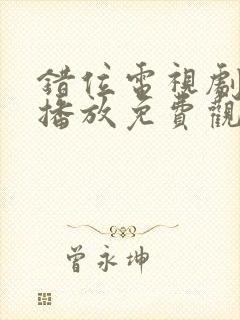 錯位電視劇
播放免費觀
曾永坤